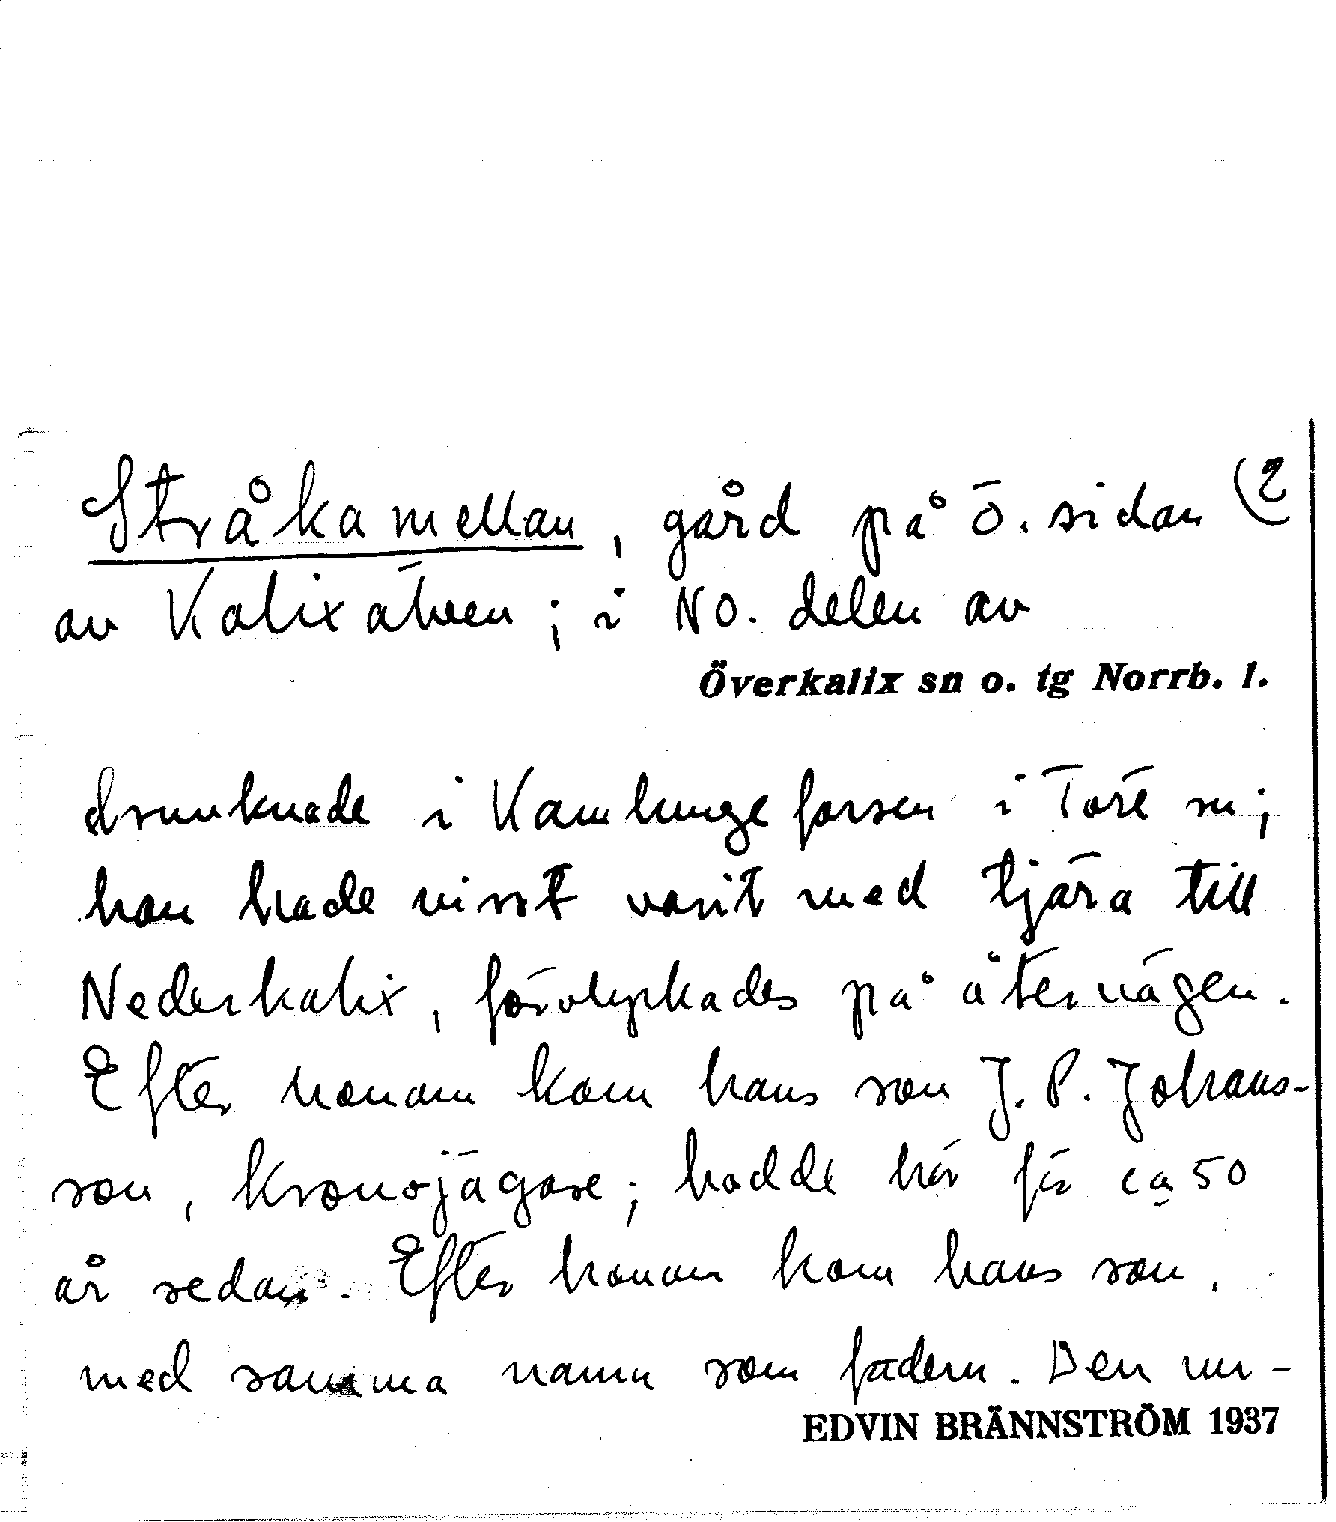 Stråkamellan, gård på ö. sidan (2
av Kalixälven; i NO. delen av
Överkalix sn o. tg Norrb. l.
drunknade i Kamlungeforsen i Töre sn;
han hade visst varit med tjära till
Nederkalix, förolyckades på återvägen.
Efter honom kom hans son J. P. Johans-
son, kronojägare; hodde här för ca 50
år sedan. Efter honom kom hans son,
med samma namn som fadern. Den nu-
EDVIN BRÄNNSTRÖM 1937